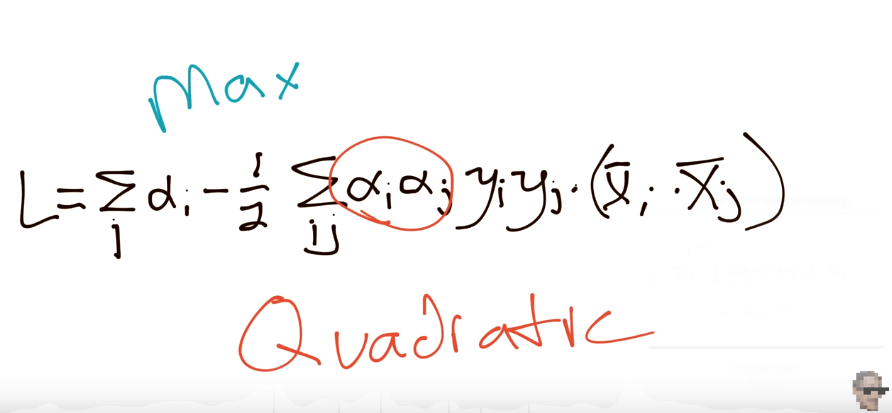 Max
L = ∑_j α_i - 1/2 ∑_ij α_i α_j y_i y_j · (x̄_i · x̄_j)
Quadratic